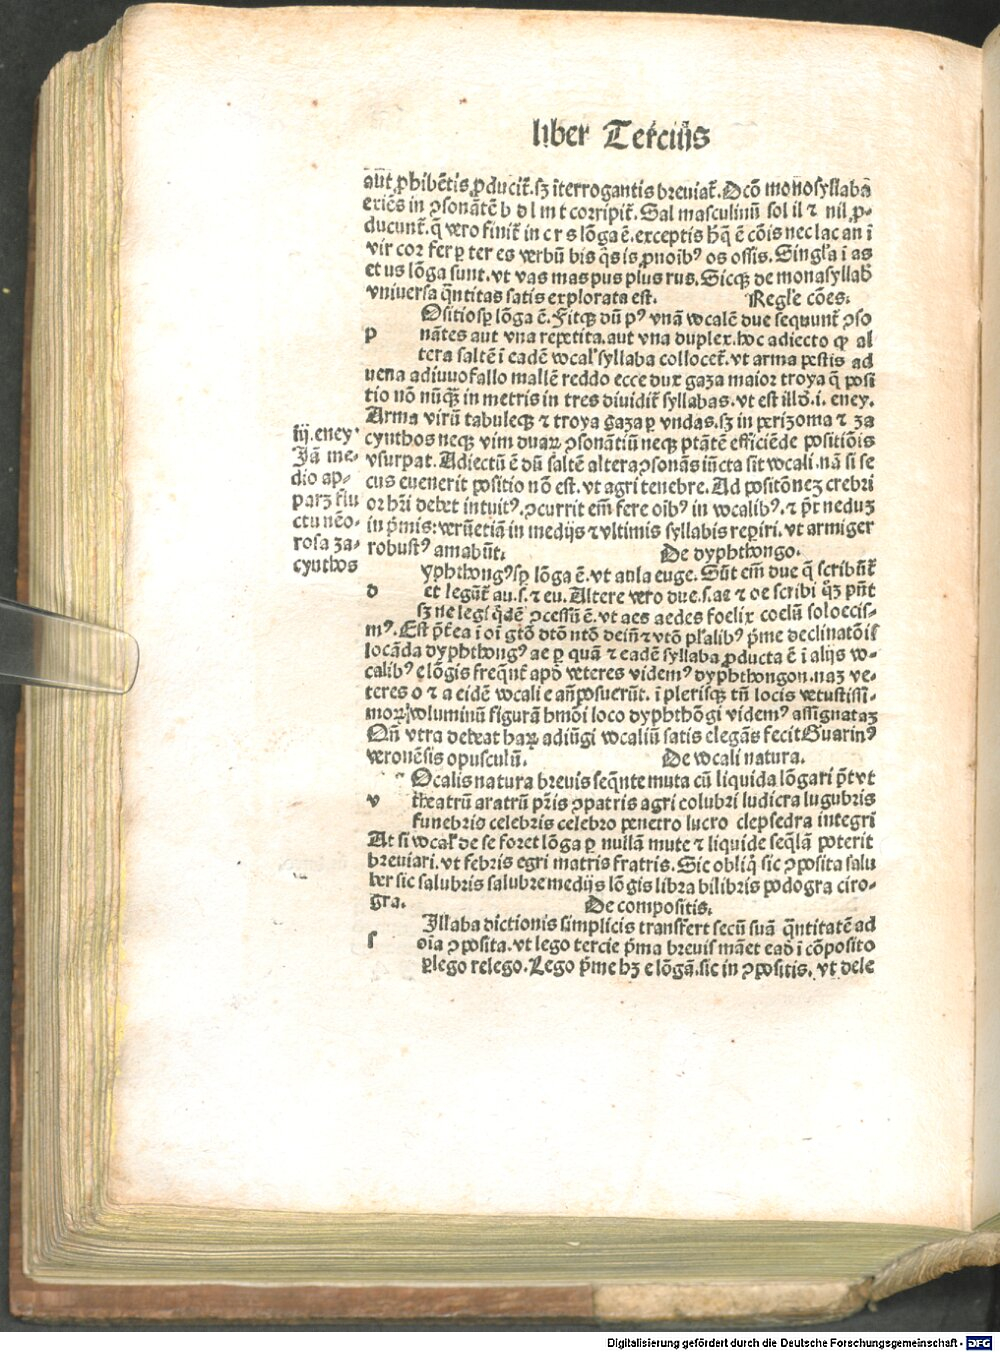 liber Terciꝰ
aut ꝓhibẽtis ꝓducit̃. sꝫ ĩterrogantis breuiat̃. Dcõ monosyllaba
eriẽs in ꝯsonãtẽ b d l m t corripit̃. Sal masculinũ sol il ⁊ nil ꝓ-
ducunt̃. q̃ vero finit̃ in c r s lõga ẽ. exceptis hq̃ ẽ cõis nec lac an ĩ
vir cor fer ꝑ ter es verbũ bis q̃s is ꝓnoibꝰ os ossis. Singl'a ĩ as
et us lõga sunt. vt vas mas pus plus rus. Sicqꝫ de monasyllab̃
vniuersa q̃ntitas satis explorata est. Regl'e cões.
Ositio sꝑ lõga ẽ. Fitqꝫ dũ pꝰ vnã vocalẽ due sequunt̃ ꝯso
p nãtes aut vna repetita. aut vna duplex. hoc adiecto ꝙ al
tera saltẽ ĩ eadẽ vocal' syllaba collocet̃. vt arma pestis ad
uena adiuuo fallo mallẽ reddo ecce dux gaza maior troya q̃ posi
tio nõ nũqꝫ in metris in tres diuidit̃ syllabas. vt est illd̃. i. eney.
Arma virũ tabuleqꝫ ⁊ troya gaza ꝑ vndas. sꝫ in perizoma ⁊ za
cynthos neqꝫ vim duaꝝ ꝯsonãtiũ neqꝫ ptãtẽ efficiẽde positiõis
vsurpat. Adiectũ ẽ dũ saltẽ altera ꝯsonãs iũcta sit vocali. nã si se
cus euenerit positio nõ est. vt agri tenebre. Ad positõneꝫ crebri
or hr̃i debet intuitꝰ. ꝯcurrit em̃ fere oibꝰ in vocalibꝰ. ⁊ pr̃t neduꝫ
in p̃mis: verũetiã in medijs ⁊ vltimis syllabis reꝑiri. vt armiger
robustꝰ amabũt. De dyphthongo.
yphthongꝰ sꝑ lõga ẽ. vt aula euge. Sũt em̃ due q̃ scribũt̃
d et legũt̃ au. s. ⁊ eu. Altere vero due. s. ae ⁊ oe scribi q̃ꝫ pñt
sꝫ ne legi q̃dẽ ꝯcessũ ẽ. vt aes aedes foelix coelũ soloecis-
mꝰ. Est p̃t̃ea ĩ oĩ gtõ dtõ ntõ deiñ ⁊ vtõ pl'alibꝰ p̃me declinatõis
locãda dyphthongꝰ ae ꝑ quã ⁊ eadẽ syllaba ꝓducta ẽ ĩ alijs vo-
calibꝰ e lõgis freq̃nt̃ apd̃ veteres videmꝰ dyphthongon. naꝫ ve-
teres o ⁊ a eidẽ vocali e añposuerũt. ĩ plerisqꝫ tñ locis vetustissi-
moꝝ voluminũ figurã hmõi loco dyphthõgi videmꝰ assignataꝫ
Qñ vtra debeat haꝝ adiũgi vocaliũ satis elegãs fecit Guarinꝰ
veronẽsis opusculũ. De vocali natura.
Ocalis natura breuis seq̃nte muta cũ liquida lõgari p̃t vt
v theatrũ aratrũ pr̃is ꝯpatris agri colubri ludicra lugubris
funebris celebris celebro penetro lucro clepsedra integri
At si vocal' de se foret lõga ꝑ nullã mute ⁊ liquide seq̃lã poterit
breuiari. vt febris egri matris fratris. Sic obliq̃ sic ꝯposita salu
ber sic salubris salubre medijs lõgis libra bilibris podogra ciro-
gra. De compositis.
Jllaba dictionis simplicis transfert secũ suã q̃ntitatẽ ad
s oĩa ꝯposita. vt lego tercie p̃ma breuis mãet ead̃ ĩ cõposito
ꝑlego relego. Lego p̃me hꝫ e lõgã. sic in ꝯpositis. vt dele
iij. eneyꝰ
Jã me-
dio ap-
paꝫ flu
ctu nẽo-
rosa za-
cynthos
Digitalisierung gefördert durch die Deutsche Forschungsgemeinschaft - DFG